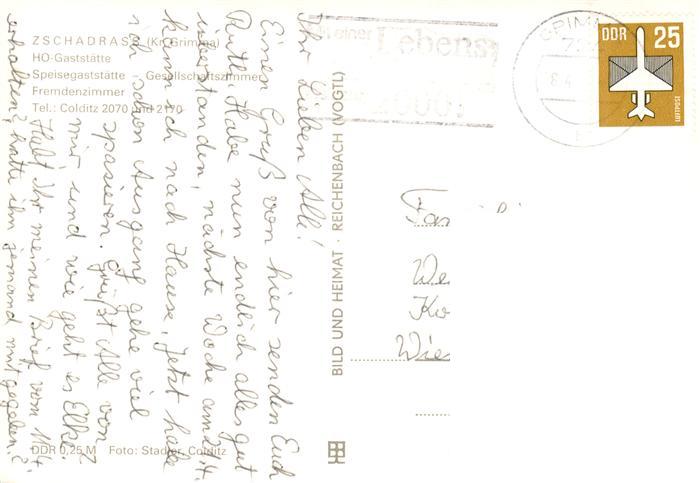 ZSCHADRASS (Kr. Grimma)
HO-Gaststätte
Speisegaststätte Gesellschaftszimmer
Fremdenzimmer
Tel.: Colditz 2070 und 2170
Ihr Lieben Alle!
Einen Gruß von hier senden Euch
Rute. Habe nun endlich alles gut
überstanden, nächste Woche am 21.4.
kann ich nach Hause, jetzt habe
ich schon Ausgang gehe viel
spazieren. Grüßt Alle von
mir und wie geht es Elke.
Habt Ihr meinen Brief vom 11.4.
erhalten? hatte ihn jemand mitgegeben?
DDR 0,25 M Foto: Stadler, Colditz
BILD UND HEIMAT · REICHENBACH (VOGTL)
einer Lebens
000
GRIMMA
8.4
DDR 25
LUFTPOST
Fa
We
Ko
Wie